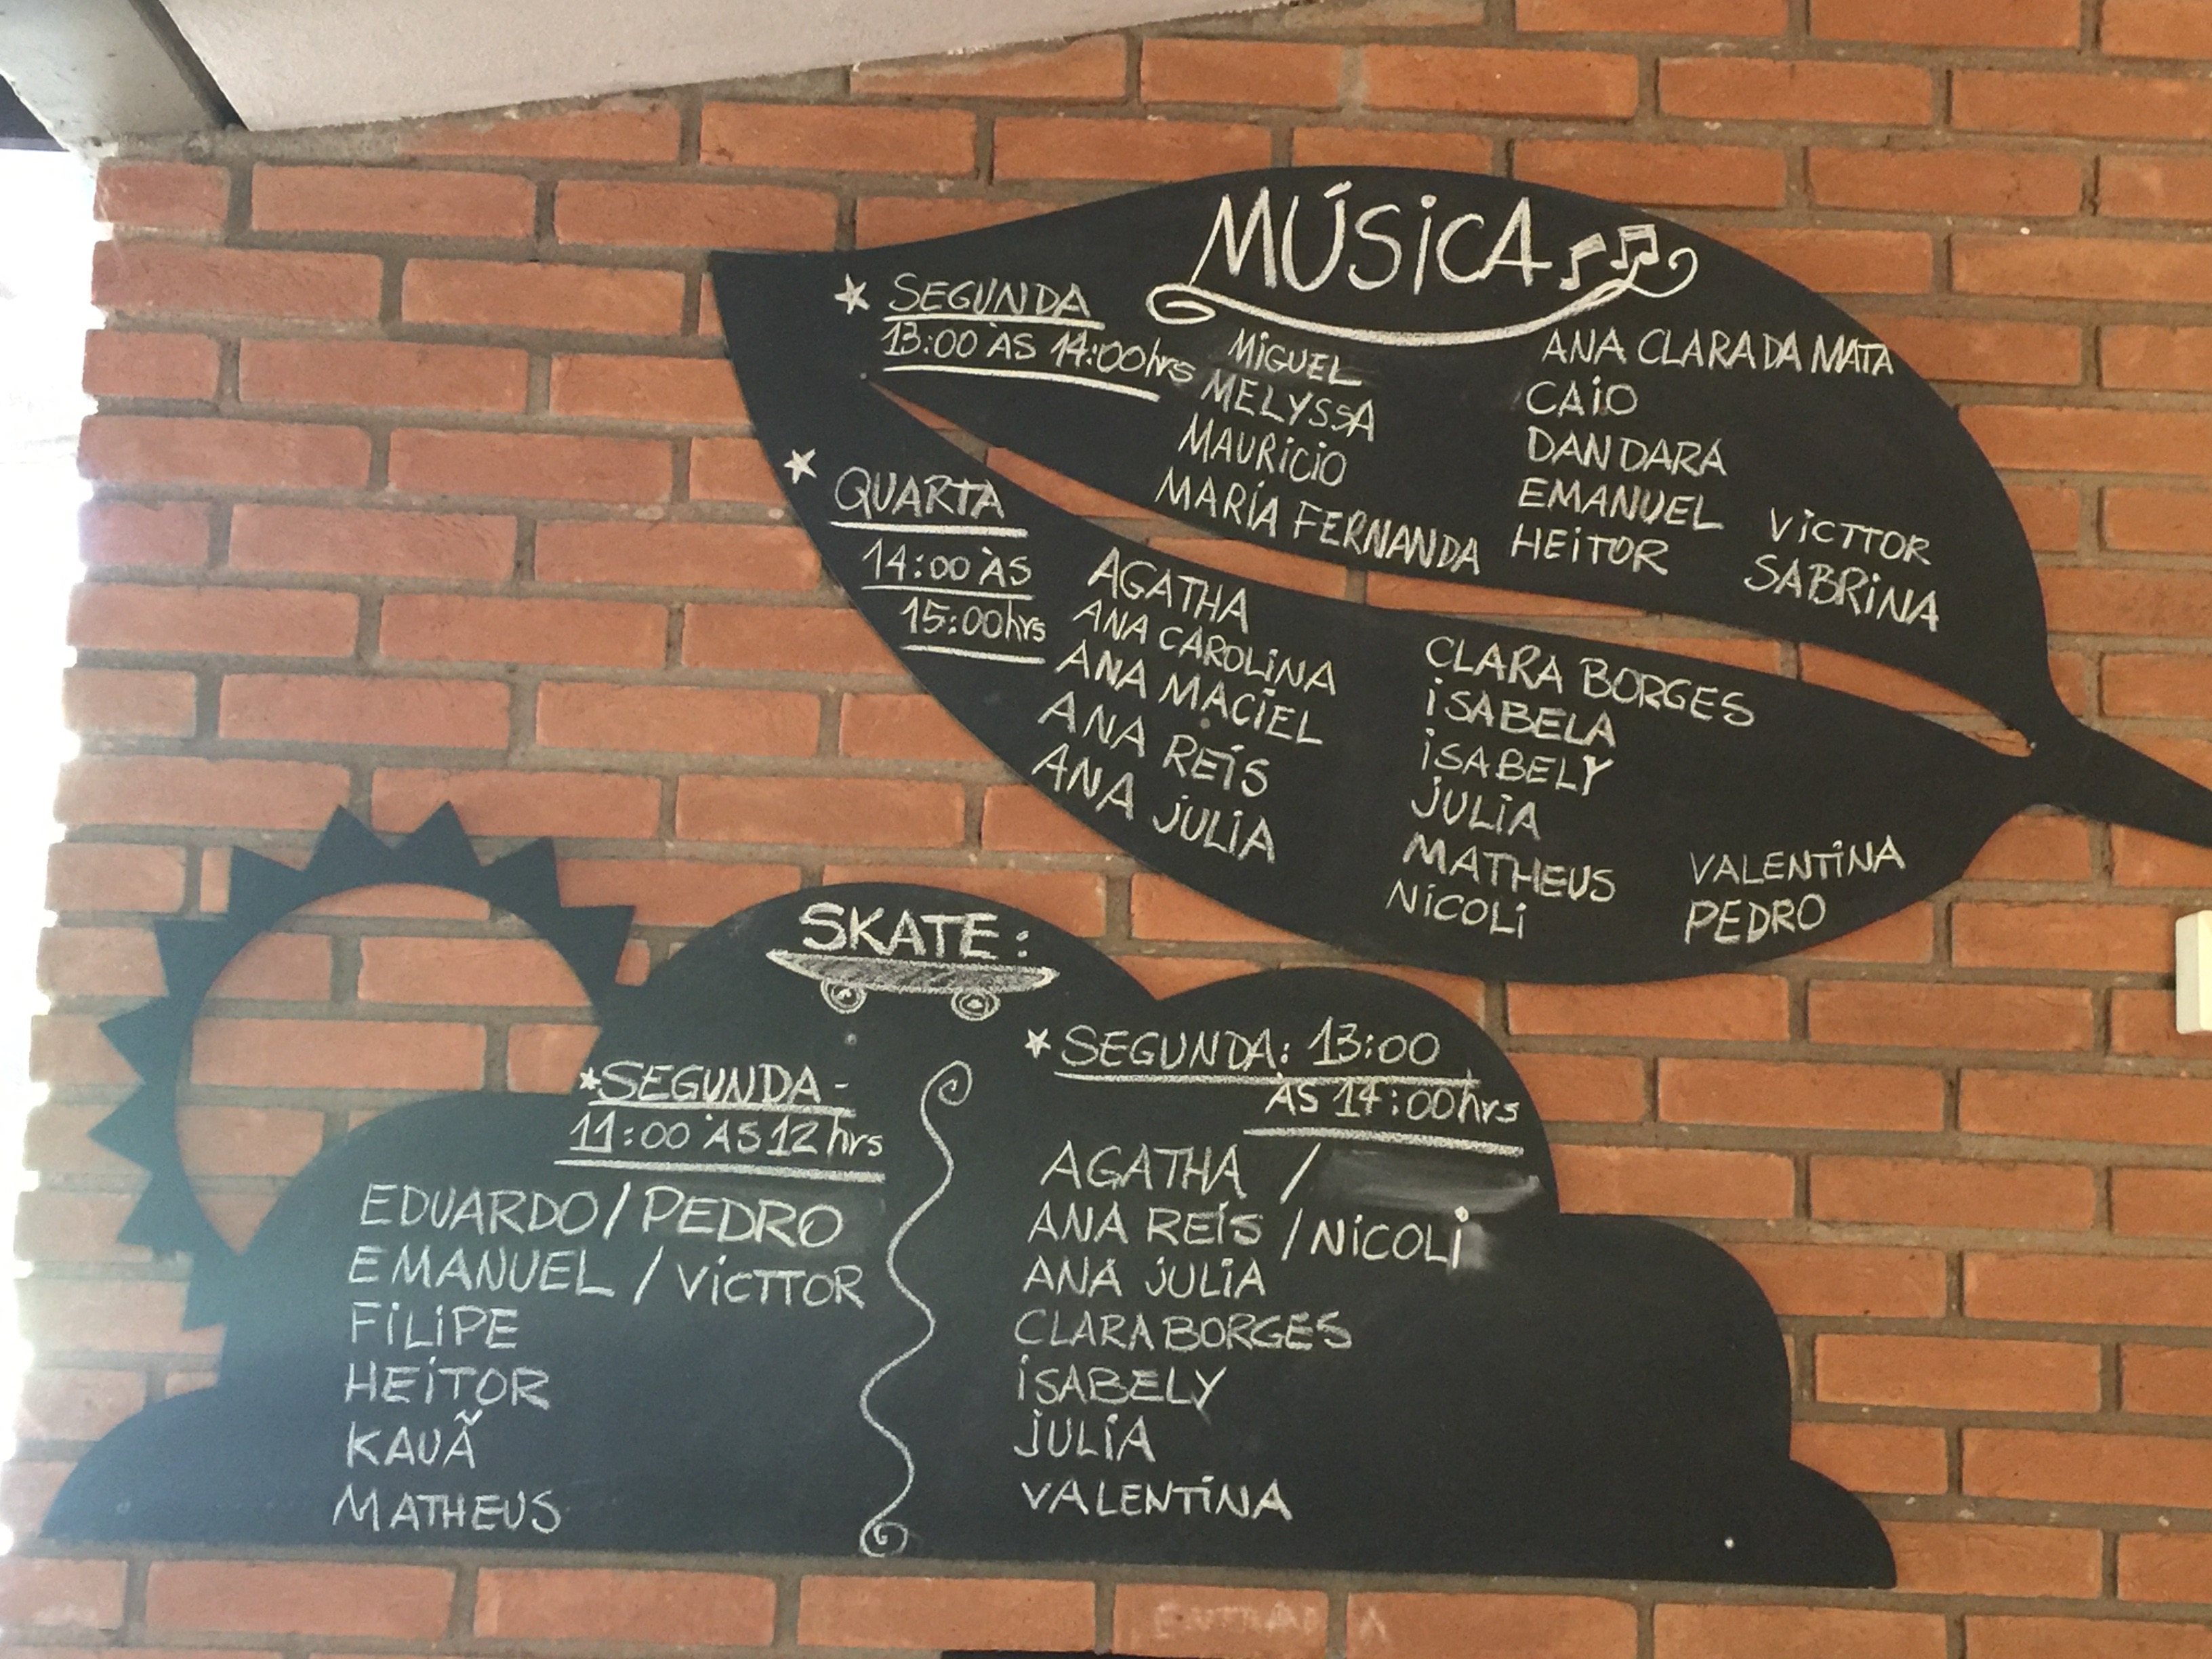 MÚSiCA
★ SEGUNDA
13:00 ÀS 14:00hrs
MiGUEL
MELYSSA
MAURiCiO
MARÍA FERNANDA
ANA CLARA DA MATA
CAiO
DANDARA
EMANUEL
HEiTOR
ViCTTOR
SABRiNA
★ QUARTA
14:00 ÀS
15:00hrs
AGATHA
ANA CAROLiNA
ANA MACÍEL
ANA REÍS
ANA jULiA
CLARA BORGES
iSABELA
iSABELY
jULiA
MATHEUS
NiCOLi
VALENTiNA
PEDRO
SKATE:
★SEGUNDA -
11:00 ÀS 12 hrs
EDUARDO / PEDRO
EMANUEL / ViCTTOR
FiLiPE
HEiTOR
KAUÃ
MATHEUS
★ SEGUNDA: 13:00
ÀS 14:00hrs
AGATHA /
ANA REÍS / NiCOLi
ANA jULiA
CLARA BORGES
iSABELY
jULiA
VALENTiNA